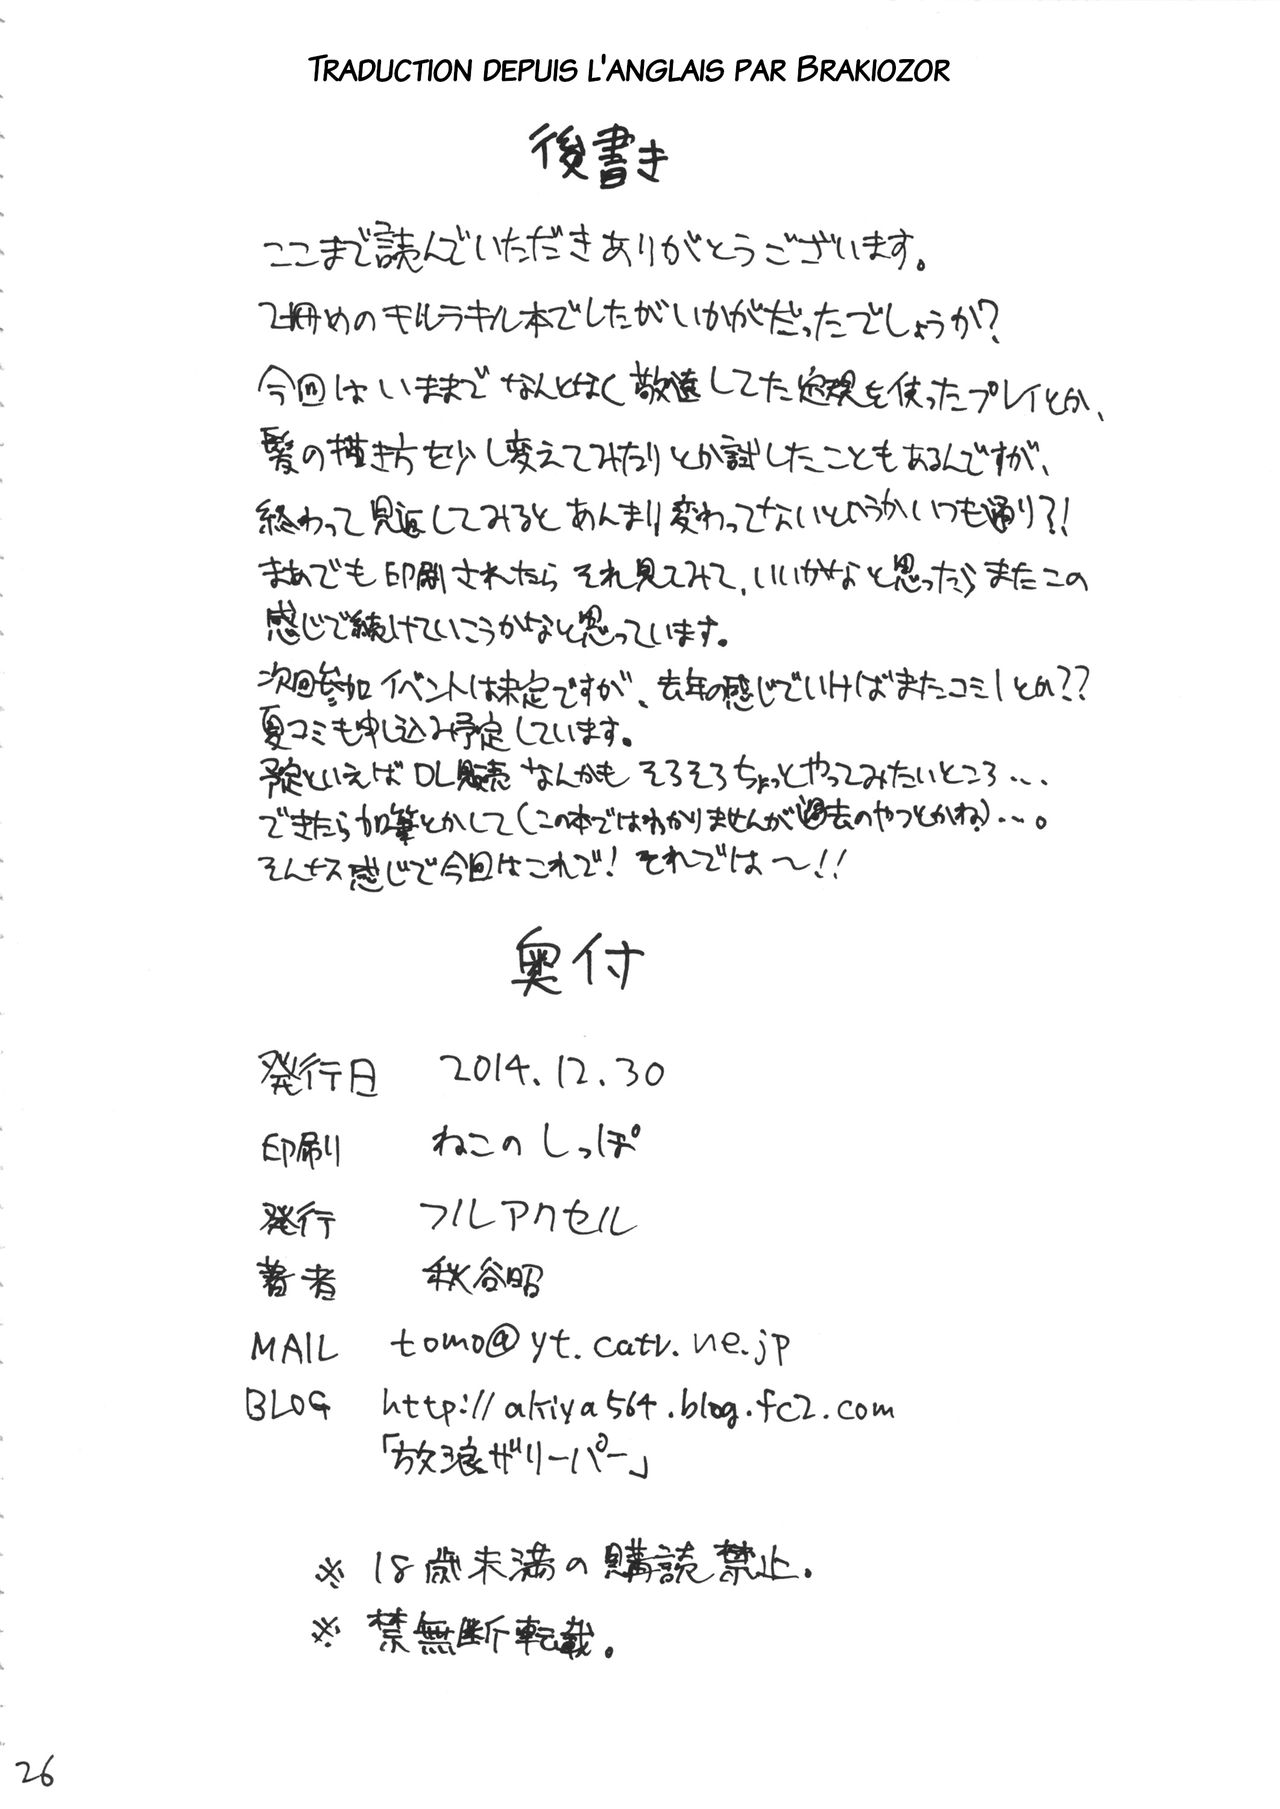 TRADUCTION DEPUIS L'ANGLAIS PAR BRAKIOZOR
後書き
ここまで読んでいただきありがとうございます。
2冊めのキルラキル本でしたがいかがだったでしょうか?
今回はいままでなんとなく敬遠してた定規を使ったプレイとか、
髪の描き方を少し変えてみたりとか試したこともあるんですが、
終わって見返してみるとあんまり変わってないというかいつも通り?!
まあでも印刷されたらそれ見てみて、いいかなと思ったらまたこの
感じで続けていこうかなと思っています。
次回参加イベントは未定ですが、去年の感じでいけばまたコミ1とか??
夏コミも申し込み予定しています。
予定といえばDL販売なんかもそろそろちょっとやってみたいところ...
できたら加筆とかして(この本ではわかりませんが過去のやつとかね)...。
そんな感じで今回はこれで!それでは〜!!
奥付
発行日 2014.12.30
印刷 ねこのしっぽ
発行 フルアクセル
著者 秋谷昭
MAIL tomo@yt.catv.ne.jp
BLOG http://akiya564.blog.fc2.com
「放浪ザリーパー」
※18歳未満の購読禁止.
※禁無断転載.
26